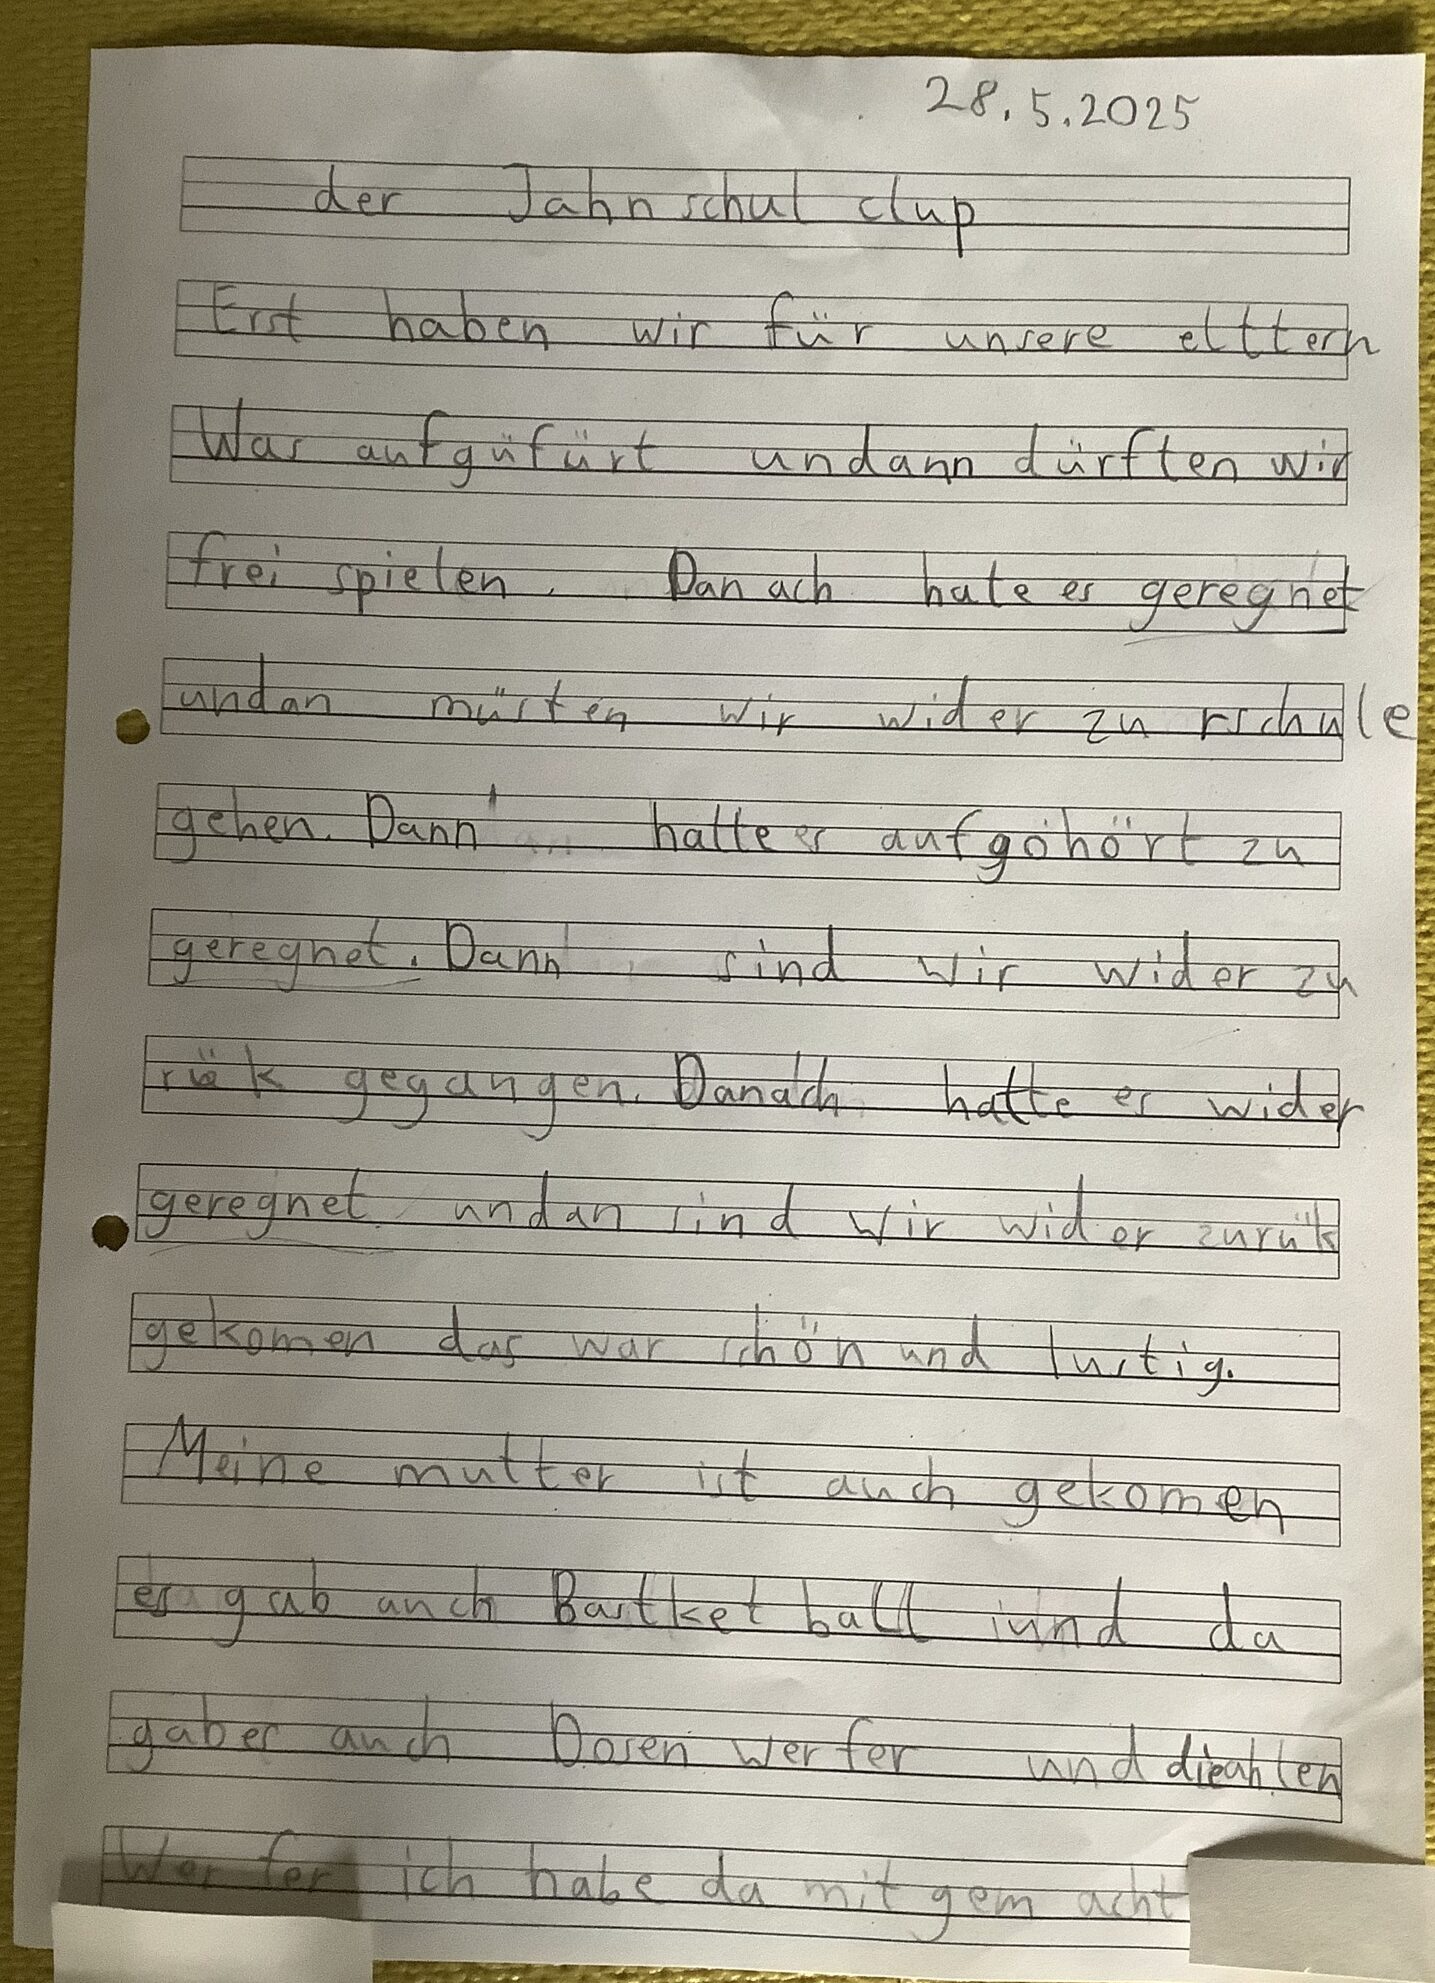 28.5.2025
der Jahn schul clup
Erst haben wir für unsere elttern
Was aufgüfürt undann dürften wir
frei spielen. Danach hate es geregnet
undan müsten wir wider zu rschule
gehen. Dann hatte es aufgöhört zu
geregnet. Dann sind wir wider zu
rük gegangen. Danach hatte es wider
geregnet undan sind wir wider zurük
gekomen das war schön und lustig.
Meine mutter ist auch gekomen
es gab auch Bastket ball und da
gabes auch Dosen werfer und
Wer fer ich habe da mit gem acht